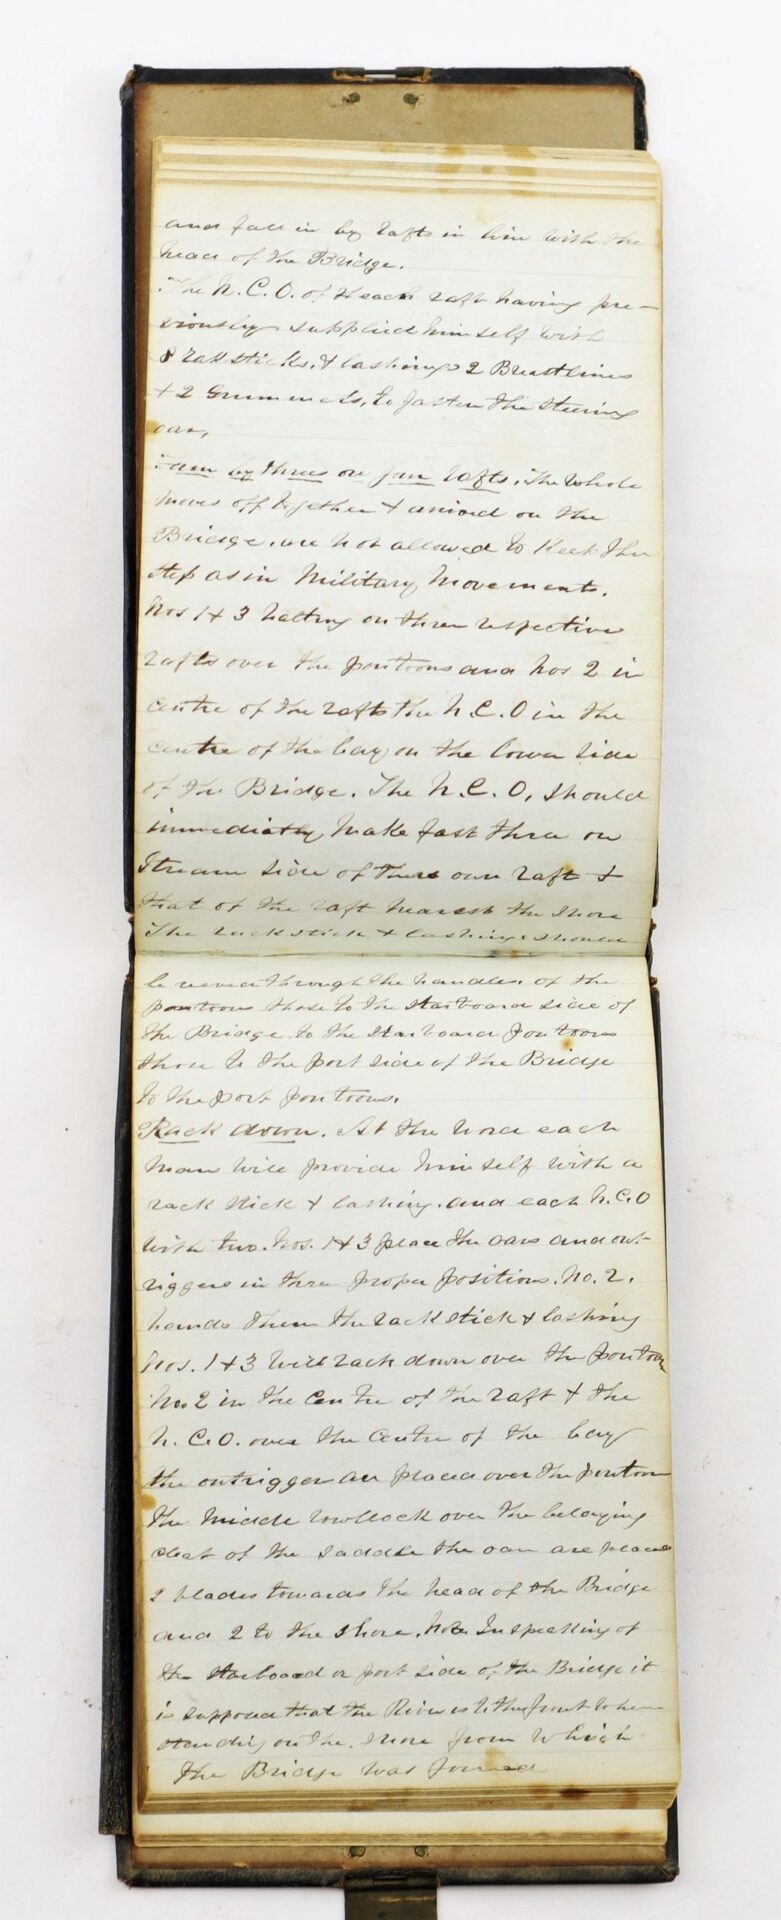 and fall in by rafts in line with the
head of the Bridge.
The N.C.O. of each raft having pre-
viously supplied him self with
8 rack sticks, & lashings 2 Breastlines
& 2 Grummets, to fasten the steering
oar,
Form by threes on your rafts. The whole
moves off together & arrived on the
Bridge. are not allowed to Keek the
step as in Military Movements.
Nos 1 & 3 halting on their respective
rafts over the pontoons and Nos 2 in
centre of the rafts the N.C.O in the
centre of the bay on the lower side
of the Bridge. The N.C.O, should
immediatly make fast three on
Stream side of there own raft &
that of the raft nearest the shore
The rack stick & lashings should
be reeved through the handles of the
pontoons those to the starboard side of
the Bridge to the starboard pontoons
those to the port side of the Bridge
to the port pontoons.
Rack down. At the word each
man will provide him self with a
rack stick & lashing. and each N.C.O
with two. Nos. 1 & 3 place the oars and out-
riggers in their proper positions. No. 2.
hands them the rack stick & lashing
Nos. 1 & 3 will rack down over the pontoon
No 2 in the centre of the raft & the
N.C.O. over the centre of the bay
the outrigger are placed over the pontoon
the middle rowllock over the belonging
cleat of the saddle the oars are placed
2 blades towards the head of the Bridge
and 2 to the shore. Note In speaking of
the starboard or port side of the Bridge it
is supposed that the River is to the front when
standing on the shore from which
the Bridge was formed